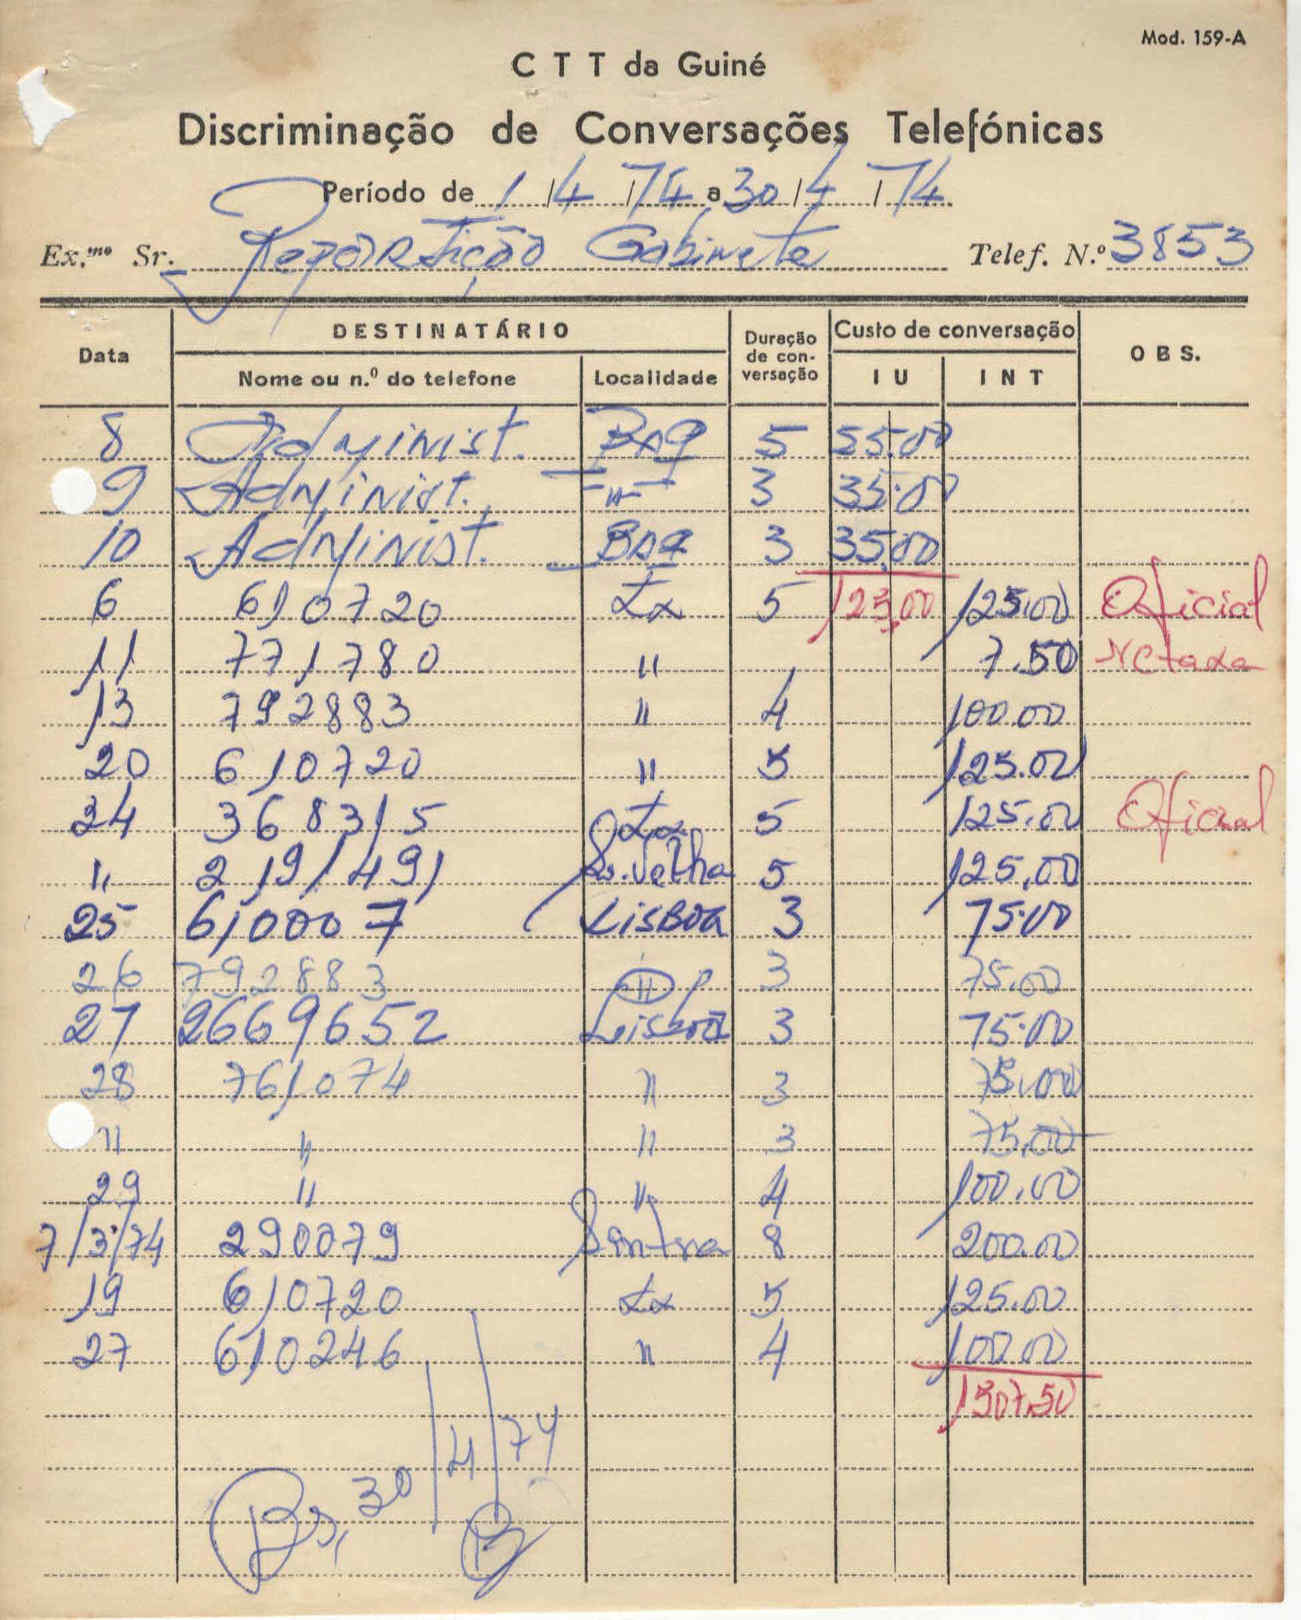 Mod. 159-A
C T T da Guiné
Discriminação de Conversações Telefónicas
Período de 1/4/74 a 30/4/74
Ex.mo Sr. Repartição Gabinete Telef. N.º 3853
Data DESTINATÁRIO Duração de conversação Custo de conversação OBS.
Nome ou n.º do telefone Localidade I U I N T
8 Administ. Baq 5 55.00
9 Administ. " 3 35.00
10 Administ. Baq 3 35,00
6 610720 Lx 5 125,00 125.00 Oficial
11 771780 " 7.50 Netaxa
13 792883 " 4 100.00
20 610720 " 5 125.00
24 368315 Lx 5 125.00 Oficial
" 2191491 Velha 5 125,00
25 610007 Lisboa 3 75.00
26 792883 " 3 75.00
27 2669652 Lisboa 3 75.00
28 761074 " 3 75.00
" " " 3 75,00
29 " " 4 100.00
7/3/74 290079 Sintra 8 200.00
19 610720 Lx 5 125.00
27 610246 " 4 100.00
1507.50
Bs, 30/4/74